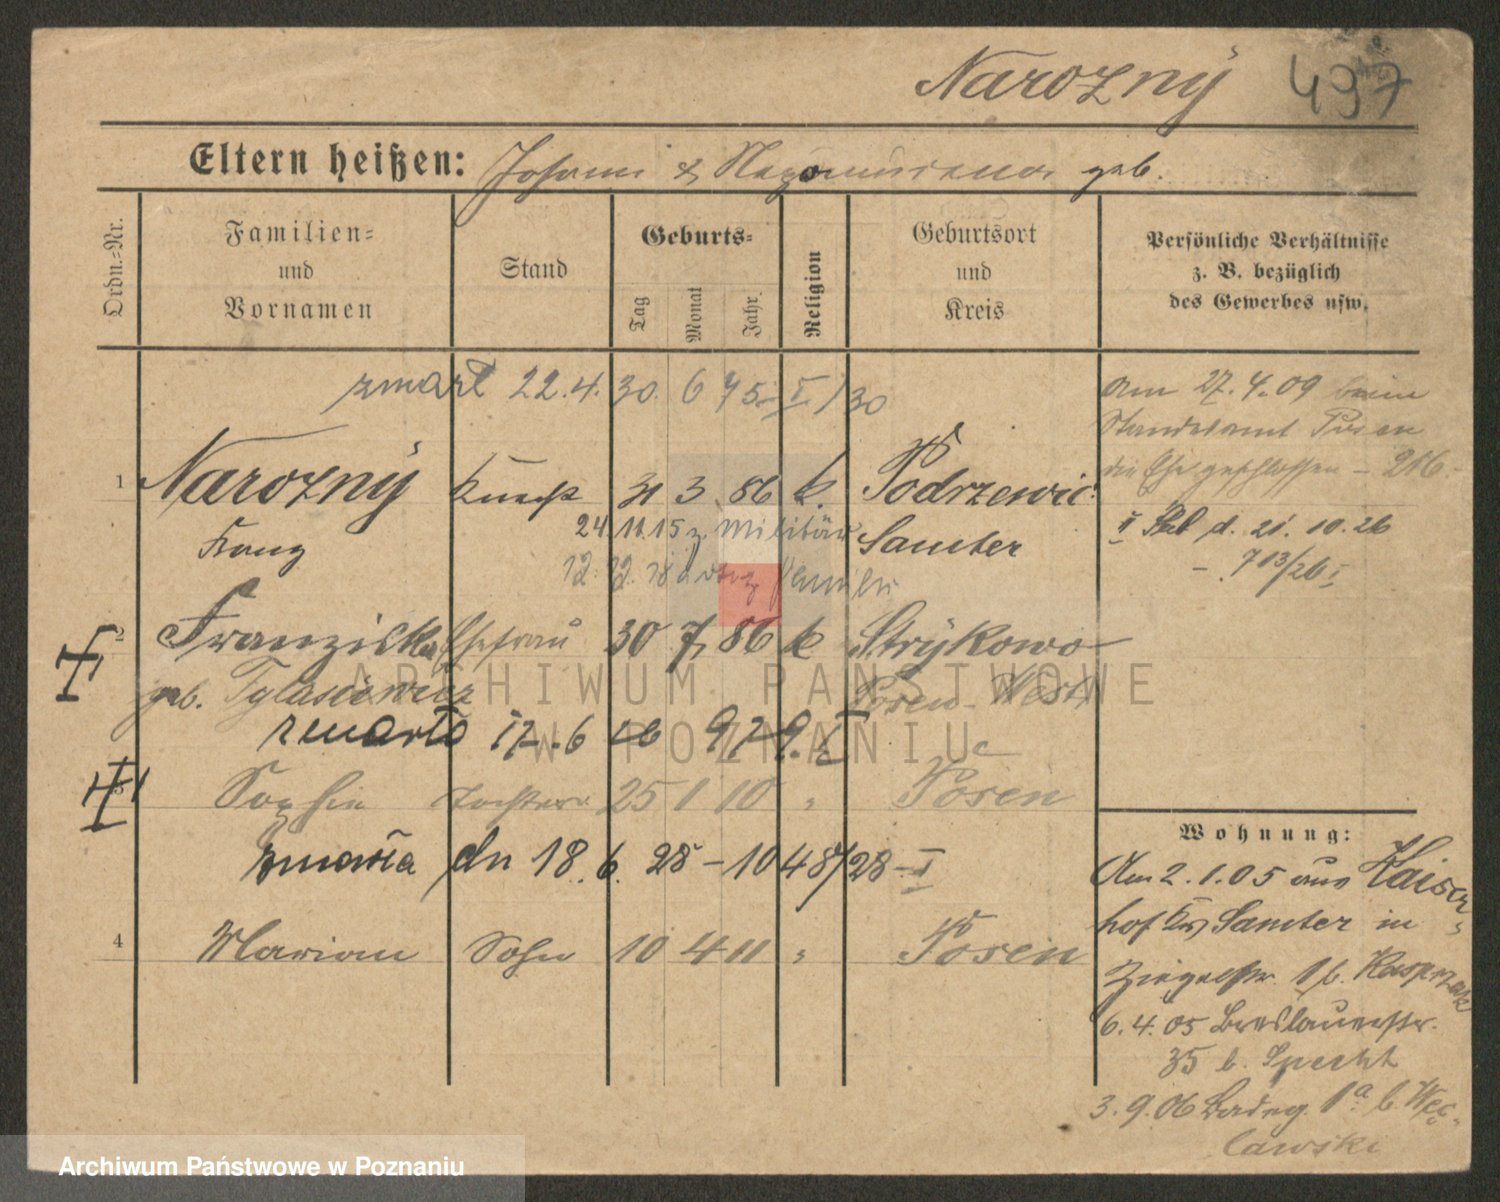 Narozný 497
Eltern heißen: Johann & geb.
Ordn.-Nr.
Familien- und Vornamen
Stand
Geburts-
Tag
Monat
Jahr.
Religion
Geburtsort und Kreis
Persönliche Verhältnisse z. B. bezüglich des Gewerbes usw.
zmarł 22.4.30. 675 I/30
Am 27.4.09 beim
Standesamt Posen
die Ehe geschlossen – 216 –
1 Narozný Knecht 31 3 86 k. Podrzewie
Franz Samter
24.11.15 z. Militär
12.12.18
d. 21.10.26
– 713/26 I
2 Franziska Ehefrau 30 7 86 k Strykowo
geb. Posen-West
zmarła 17.6 26 979. I
3 Sophie Tochter 25 1 10 " Posen
zmarła dn 18.6. 28 – 1048/28 – I
4 Marian Sohn 10 4 11 " Posen
Wohnung:
Am 2.1.05 aus Kaiser-
hof Krs Samter in
Ziegelstr. 1 b. Kasprzak
6.4.05 Breslauerstr.
35 b. Specht
3.9.06 1a b. Wec-
lawski
ARCHIWUM PAŃSTWOWE
W POZNANIU
Archiwum Państwowe w Poznaniu